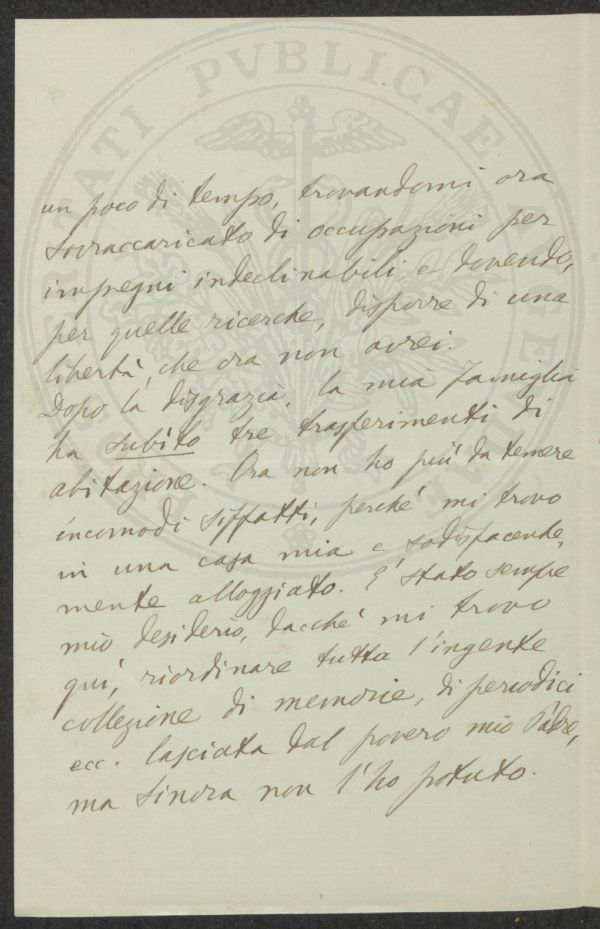 PVBLICAE
un poco di tempo, trovandomi ora
sovraccaricato di occupazioni per
impegni indeclinabili e dovendo,
per quelle ricerche, disporre di una
libertà, che ora non avrei.
Dopo la disgrazia, la mia famiglia
ha subìto tre trasferimenti di
abitazione. Ora non ho più da temere
incomodi siffatti, perché mi trovo
in una casa mia e sodisfacente-
mente alloggiato. E' stato sempre
mio desiderio, dacché mi trovo
qui, riordinare tutta l'ingente
collezione di memorie, di periodici
ecc. lasciata dal povero mio Padre,
ma sinora non l'ho potuto.